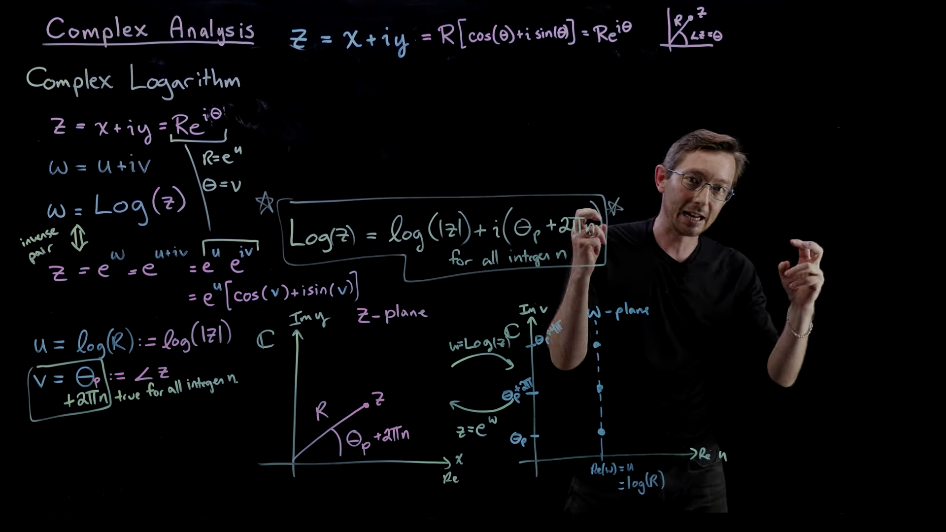 Complex Analysis
Z = x+iy = R[cos(θ)+i sin(θ)] = Re^{iθ}
R Z
∠Z=θ
Complex Logarithm
Z = x+iy = Re^{iθ}
R=e^u
ω = u+iv
θ=v
ω = Log(z)
inverse pair
Z = e^ω = e^{u+iv} = e^u e^{iv}
= e^u[cos(v)+isin(v)]
Log(z) = log(|z|)+i(θ_p+2πn)
for all integer n
u = log(R) := log(|z|)
v = θ_p := ∠z
+2πn true for all integer n
Im y
Z-plane
ℂ
R
Z
θ_p+2πn
x
Re
w=Log(z)
z=e^w
Im v
w-plane
ℂ
θ_p+2π
θ_p
Re u
Re(w)=u
=log(R)